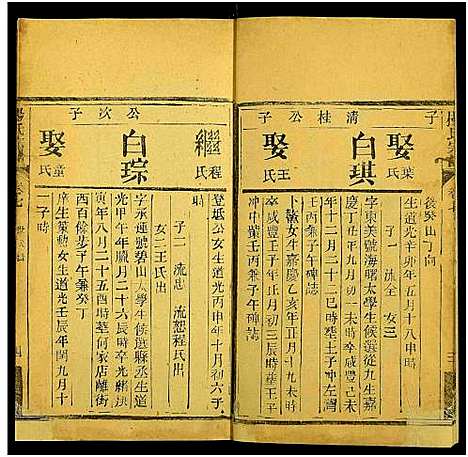 子
娶葉氏
後癸山丁向
生道光辛卯年五月十八申時
子一 流全 女三
清桂公子
白琪
字東美號海曙太學生候選從九生嘉
慶丁丑年九月初三時卒咸豐己未
年十二月二十二巳時
壬丙兼子午碑誌
娶王氏
卜鰲女生嘉慶乙亥年正月十九未時
卒咸豐壬子年正月初三時葬王平
冲中丙兼子午碑誌
公次子
繼程氏
登坻公女生道光丙申年十月初六子
時
子二 流忠 流恕程氏出
女二王氏出
白琮
字永運號碧山太學生候選縣丞生道
光甲午年臘月二十六辰時卒光緒庚
寅年八月二十五酉時葬何家店離街
西百餘步子午兼癸丁
娶童氏
庠生策勳女生道光壬辰年閏九月十
一子時